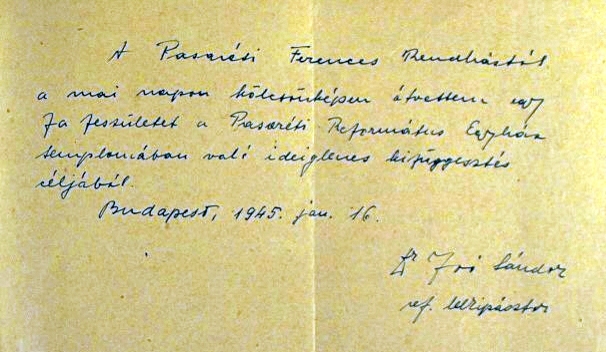 A Pasaréti Ferences Rendháztól
a mai napon kölcsönképen átvettem egy
fa feszületet a Pasaréti Református Egyház
templomában való ideiglenes kifüggesztés
céljából.
Budapest, 1945. jan. 16.
Dr Joó Sándor
ref. lelkipásztor